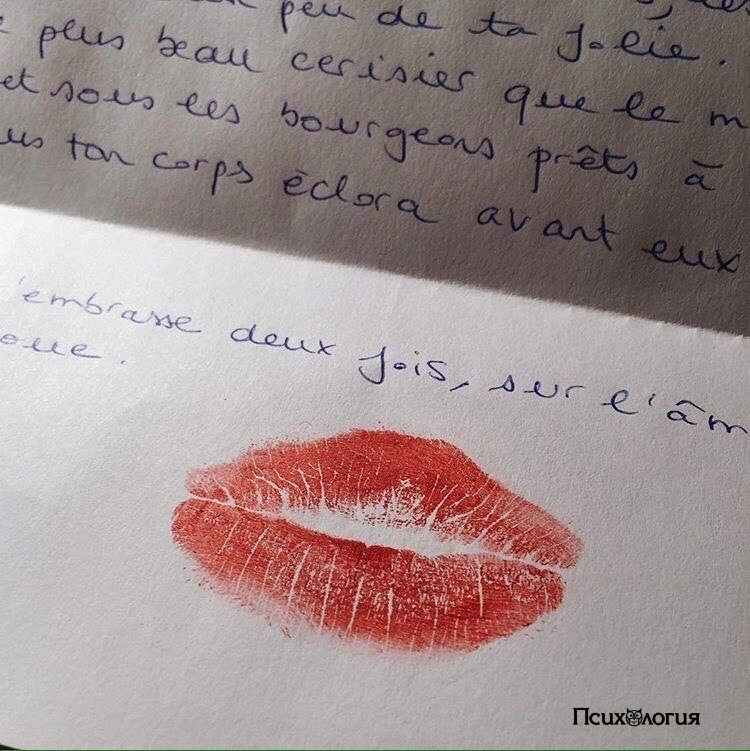 peu de ta jolie.
plus beau cerisier que le m
et sous les bourgeons prêts à
us ton corps éclora avant eux
'embrasse deux fois, sur l'âm
oue.
Психология